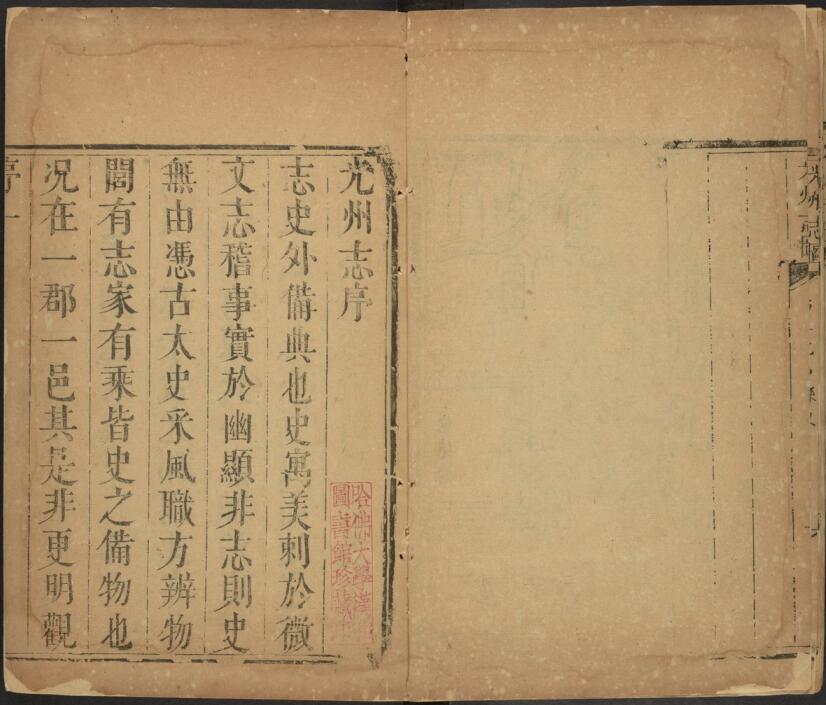 光州志
光州志序
志史外備典也史寓美刺於微
文志稽事實於幽顯非志則史
無由憑古太史采風職方辨物
閭有志家有乘皆史之備物也
況在一郡一邑其是非更明觀
序一
哈佛大學漢
圖書館珍藏